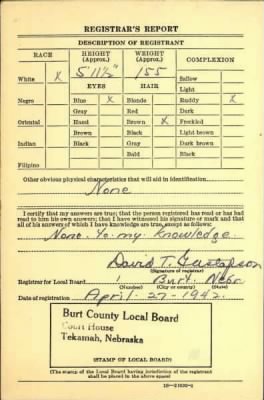 REGISTRAR'S REPORT
DESCRIPTION OF REGISTRANT
RACE HEIGHT (Approx.) WEIGHT (Approx.) COMPLEXION
White X 5' 11½" 155 Sallow
EYES HAIR Light
Negro Blue X Blonde Ruddy X
Gray Red Dark
Oriental Hazel Brown X Freckled
Brown Black Light brown
Indian Black Gray Dark brown
Bald Black
Filipino
Other obvious physical characteristics that will aid in identification
None
I certify that my answers are true; that the person registered has read or has had
read to him his own answers; that I have witnessed his signature or mark and that
all of his answers of which I have knowledge are true, except as follows:
None to my knowledge
David T. Gustafson
(Signature of registrar)
Registrar for Local Board 1 Burt Nebr
(Number) (City or county) (State)
Date of registration April-27-1942
Burt County Local Board
Court House
Tekamah, Nebraska
(STAMP OF LOCAL BOARD)
(The stamp of the Local Board having jurisdiction of the registrant
shall be placed in the above space)